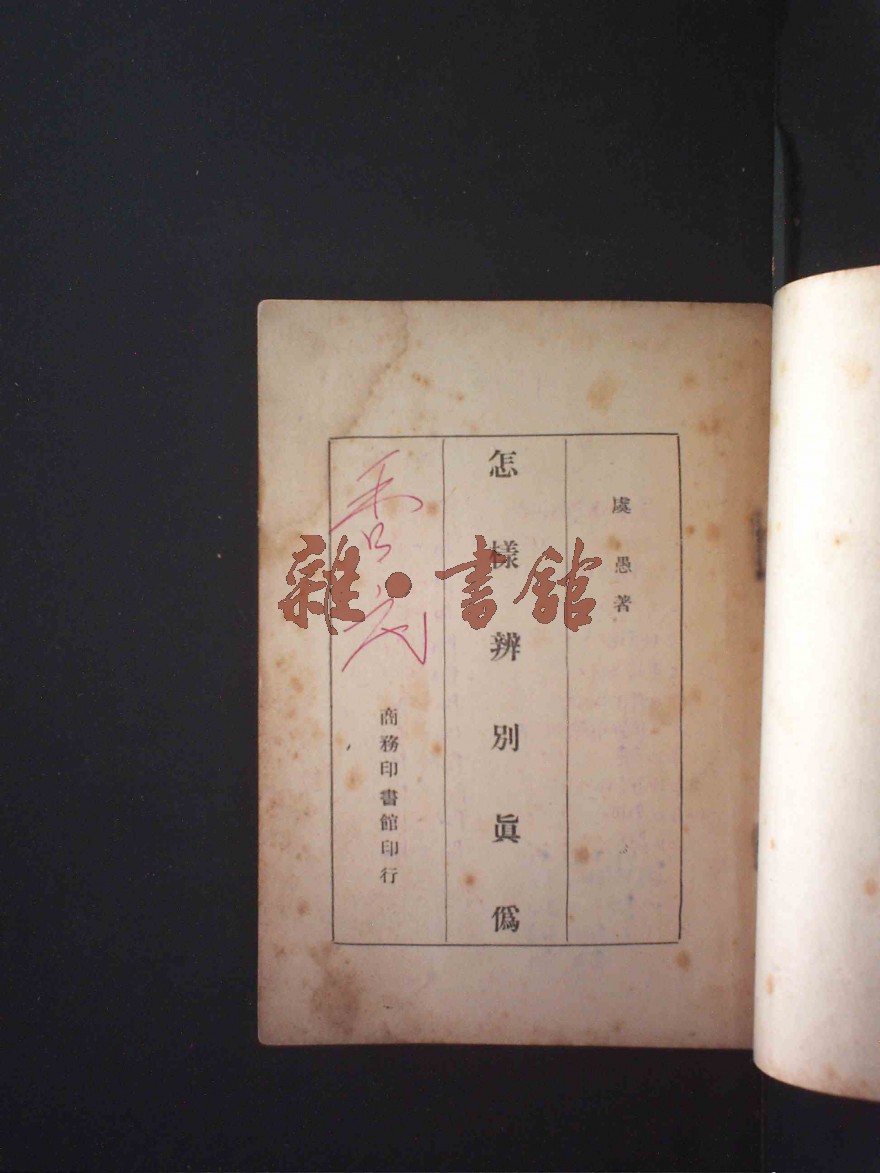 虞愚著
怎樣辨別眞僞
商務印書館印行
雜•書館